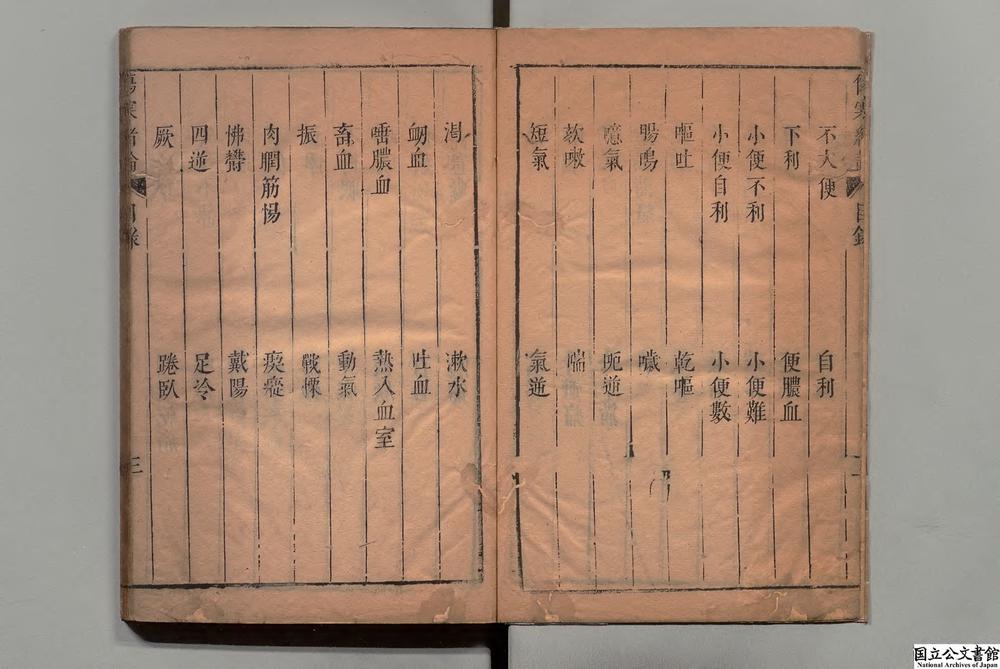 不大便 自利
下利 便膿血
小便不利 小便難
小便自利 小便數
嘔吐 乾嘔
腸鳴 噦
噫氣 呃逆
欬嗽 喘
短氣 氣逆
目錄
渴 漱水
衂血 吐血
唾膿血 熱入血室
畜血 動氣
振 戰慄
肉瞤筋惕 瘈瘲
怫鬱 戴陽
四逆 足冷
厥 踡臥
傷寒緒論 目錄 三
国立公文書館
National Archives of Japan